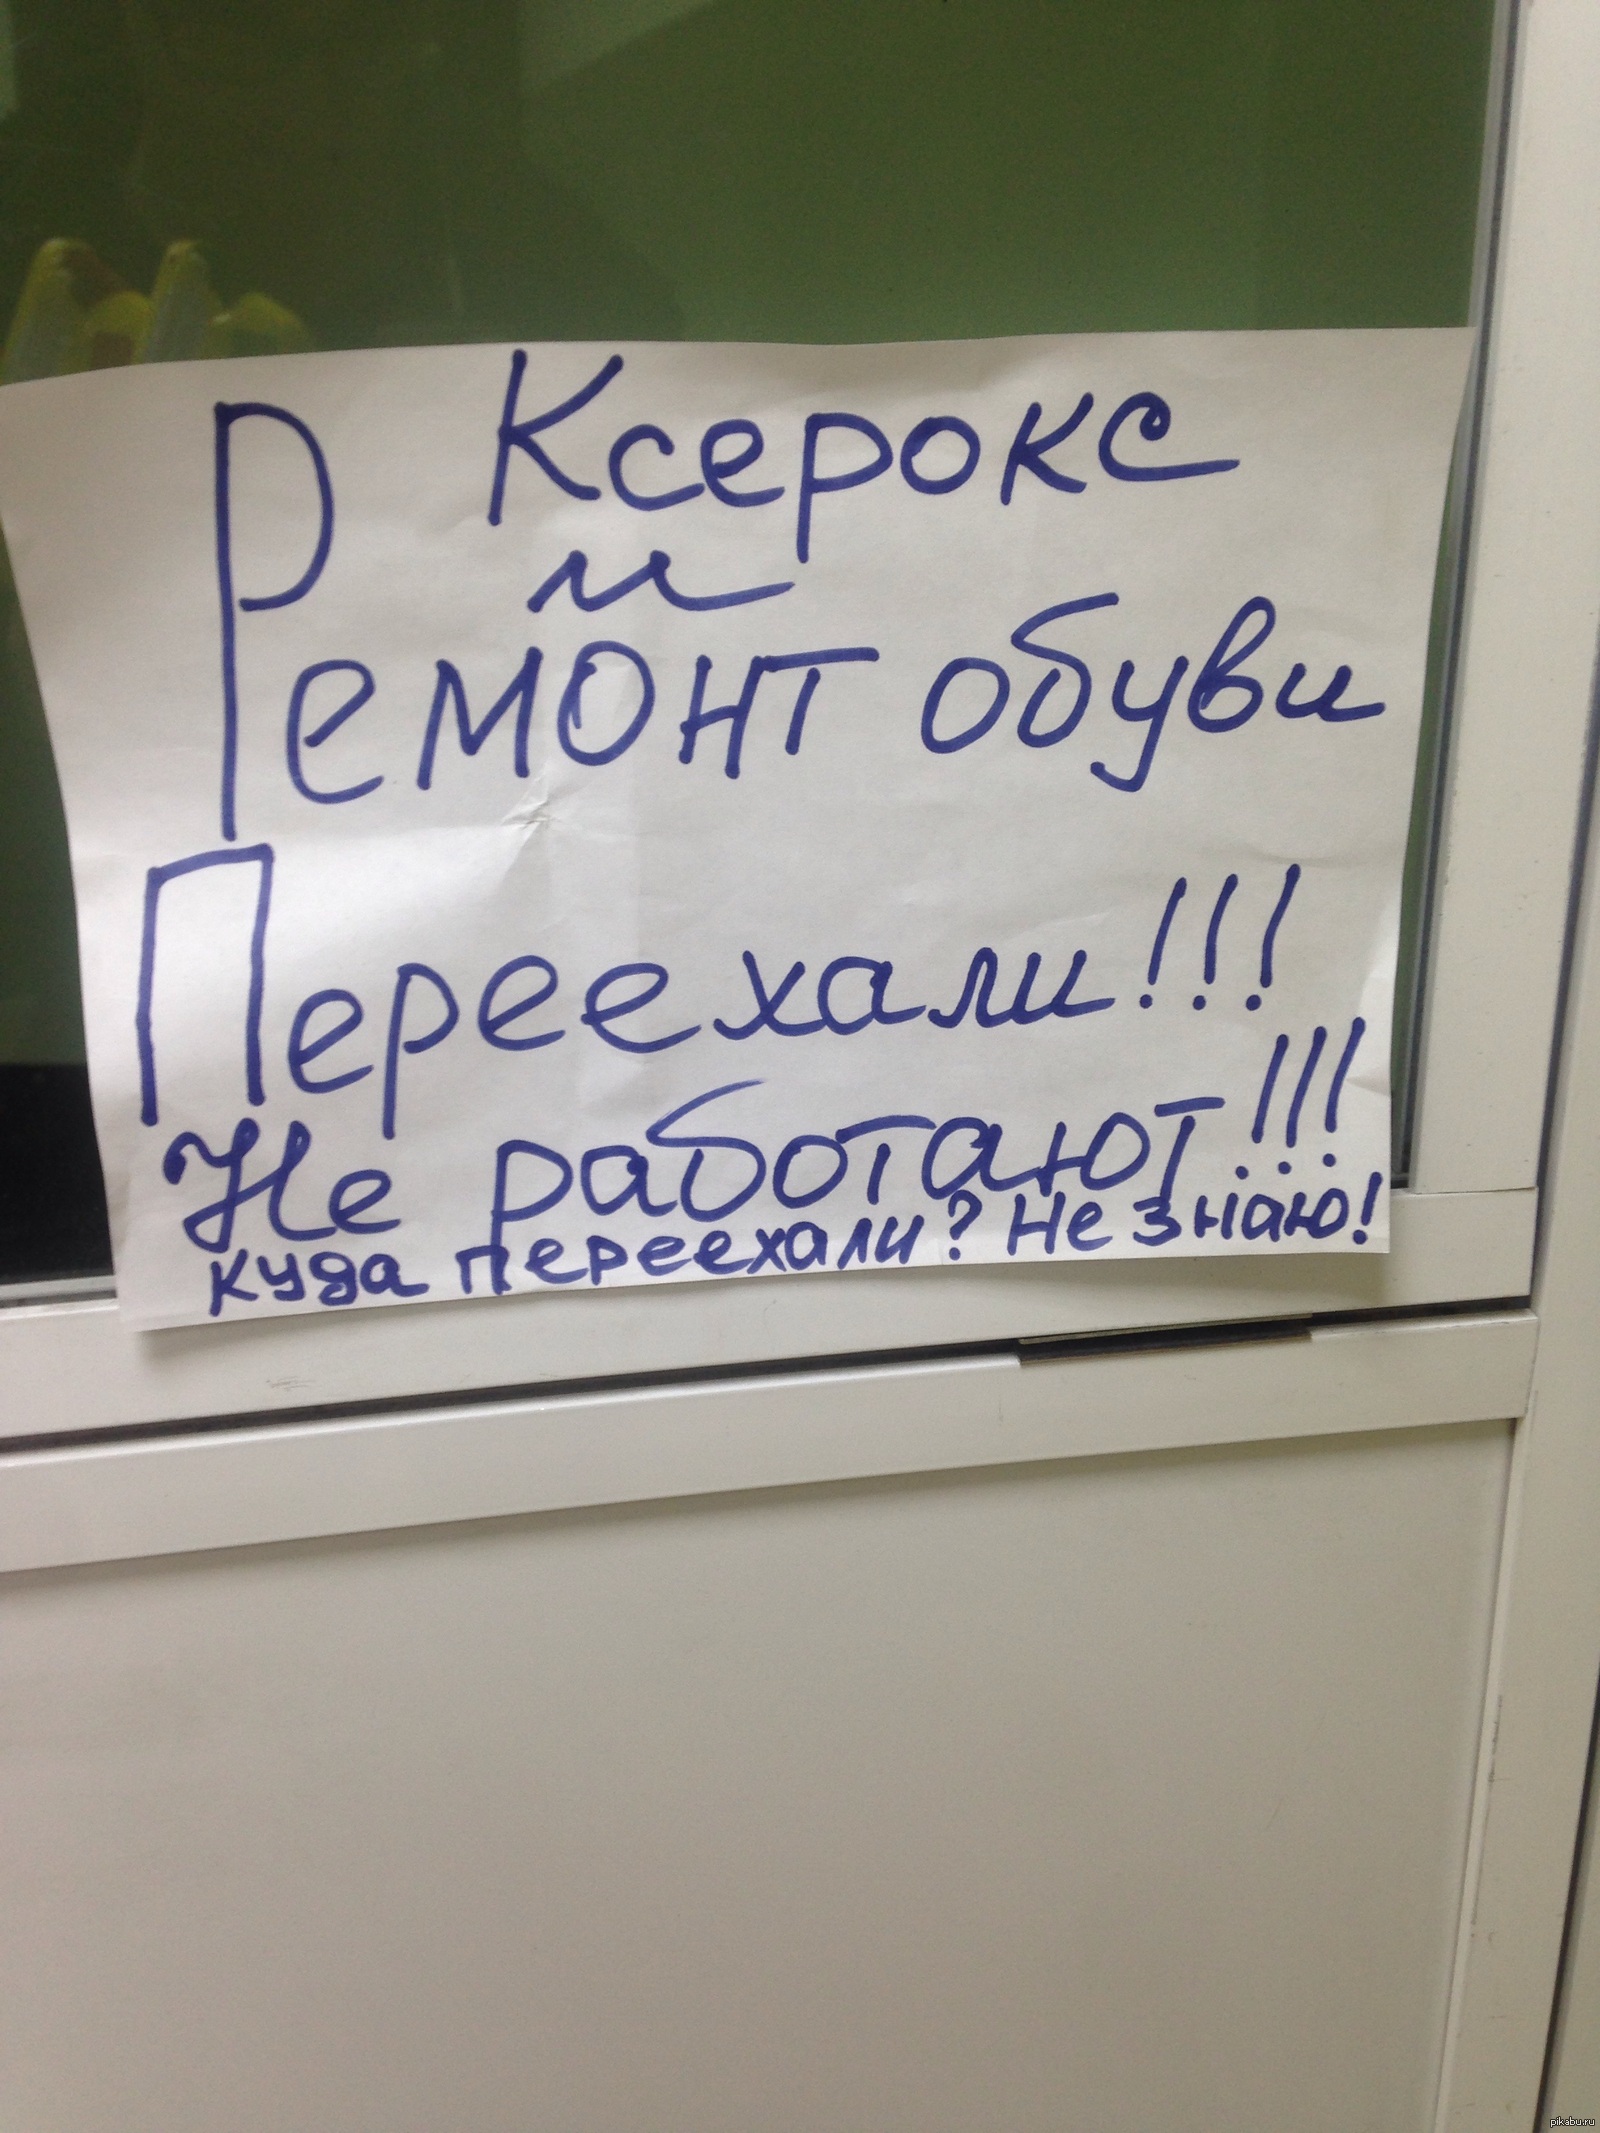 Ксерокс
и
Ремонт обуви
Переехали!!!
Не работают!!!
куда переехали? Не знаю!
pikabu.ru